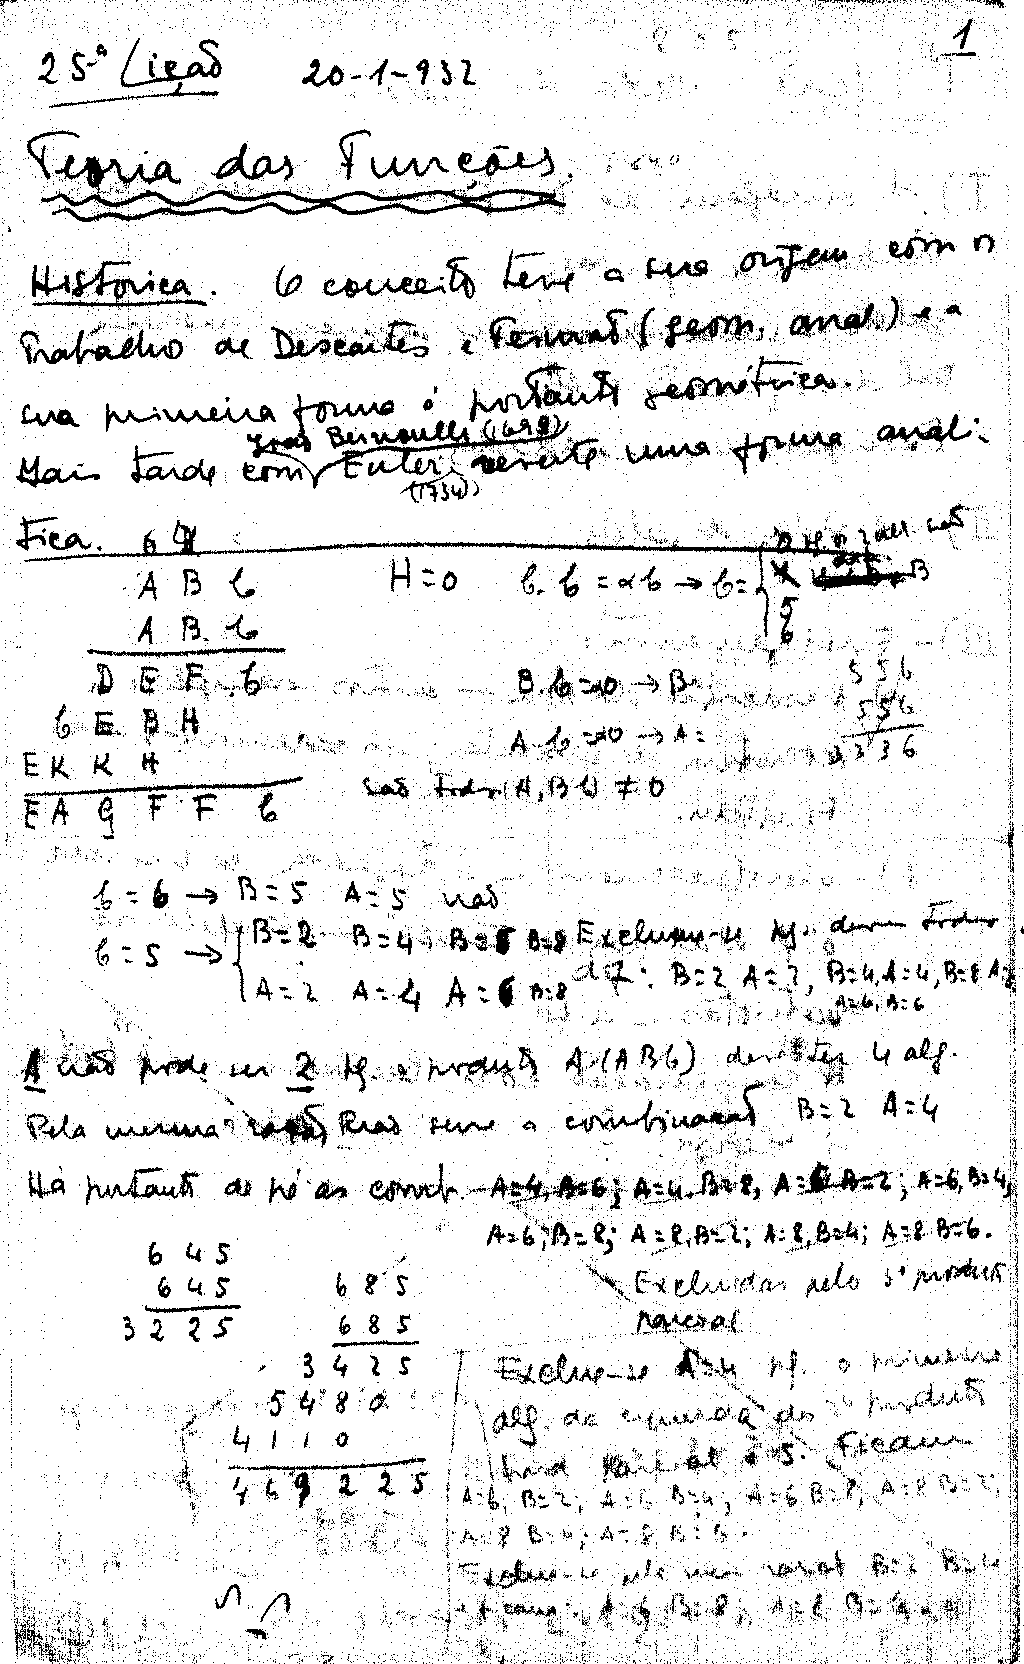 1
25ª Lição 20-1-932
Teoria das Funções.
Histórica. O conceito teve a sua origem com o
trabalho de Descartes e Fermat (geom. anal.) e a
sua primeira forma é portanto geométrica.
João Bernoulli (1698)
Mais tarde com Euler reveste uma forma anali-
(1734)
tica.
A B C
A B C
D E F C
C E B H
E K K H
E A G F F C
H=0 C.C = αC → C=
5
6
B.C=α0 → B
A.C=α0 → A=
são todos (A, B C) ≠ 0
5 5 6
5 5 6
3 3 3 6
C=6 → B=5 A=5 não
C=5 → B=2 B=4 B=6 B=8
A=2 A=4 A=6 B=8
Excluem-se pq. devem todos
dif: B=2 A=2, B=4, A=4, B=8 A=8
A=6, B=6
A não pode ser 2 pq. o produto A(ABC) deve ter 4 alg.
Pela mesma razão não serve a combinação B=2 A=4
Há portanto de pé as comb. A=4, B=6; A=4, B=8, A=6 B=2; A=6, B=4,
A=6; B=8; A=8, B=2; A=8, B=4; A=8 B=6.
Excluidas pelo 3º produto
parcial
6 4 5
6 4 5
3 2 2 5
6 8 5
6 8 5
3 4 2 5
5 4 8 0
4 1 1 0
4 6 9 2 2 5
Exclue-se A=4 pq. o primeiro
alg. da esquerda do produto
parcial é 5. Ficam
A=6, B=2; A=6 B=4; A=6 B=8, A=8 B=2;
A=8 B=4; A=8 B=6.
Exclue-se pela mesma razão B=2 B=4